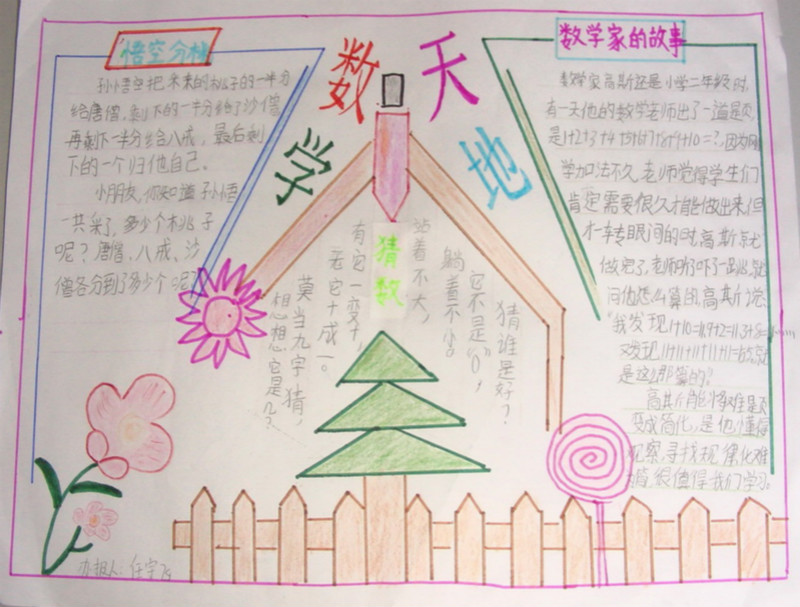 数学天地
悟空分桃
孙悟空把采来的桃子的一半分
给唐僧,剩下的一半分给了沙僧
再剩下一半分给八戒,最后剩
下的一个归他自己。
小朋友,你知道孙悟
一共采了多少个桃子
呢?唐僧、八戒、沙
僧各分到了多少个呢?
数学家的故事
数学家高斯还是小学二年级时,
有一天他的数学老师出了一道题
是1+2+3+4+5+6+7+8+9+10=?,因为刚
学加法不久,老师觉得学生们
肯定需要很久才能做出来,但
才一转眼间的时,高斯就
做完了,老师吓了一跳,就
问他怎么算的,高斯说:
"我发现1+10=11,2+9=11,3+8=
又发现11+11+11+11+11=55,就
是这么算的。"
高斯能将难题
变成简化,是他懂得
观察,寻找规律化难
很值得我们学习。
猜数
猜谁是好?
它不是"0",
躺着不小,
站着不大,
有它一变十,
无它十成一。
莫当九字猜,
想想它是几?
办报人:任宇